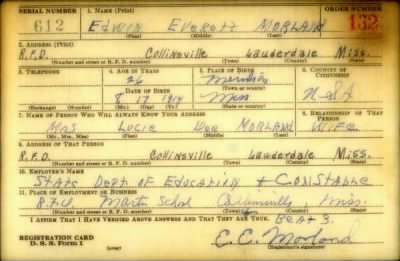 SERIAL NUMBER 1. NAME (Print) ORDER NUMBER
612 EDWIN EVERETT MORLAND 132
(First) (Middle) (Last)
2. ADDRESS (Print)
R.F.D. Collinsville Lauderdale Miss.
(Number and street or R. F. D. number) (Town) (County) (State)
3. TELEPHONE 4. AGE IN YEARS 5. PLACE OF BIRTH 6. COUNTRY OF CITIZENSHIP
26 Meridian
(Town or county)
DATE OF BIRTH
8 17 1914 Miss USA
(Exchange) (Number) (Mo.) (Day) (Yr.) (State or country)
7. NAME OF PERSON WHO WILL ALWAYS KNOW YOUR ADDRESS 8. RELATIONSHIP OF THAT PERSON
Mrs Lucie Dee MORLAND WIFE
(Mr., Mrs., Miss) (First) (Middle) (Last)
9. ADDRESS OF THAT PERSON
R.F.D. Collinsville Lauderdale Miss.
(Number and street or R. F. D. number) (Town) (County) (State)
10. EMPLOYER'S NAME
State Dept of Education + CONSTABLE
11. PLACE OF EMPLOYMENT OR BUSINESS
Martin School Collinsville, Miss.
(Number and street or R. F. D. number) (Town) (County) (State)
I AFFIRM THAT I HAVE VERIFIED ABOVE ANSWERS AND THAT THEY ARE TRUE. Beat 3.
REGISTRATION CARD
D. S. S. Form 1 (over) E. E. Morland
(Registrant's signature)